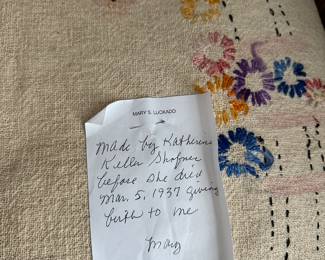 MARY S. LUCKADO
Made by Katherine
Keller Shofner
before she died
Mar. 5, 1937 giving
birth to me
Mary